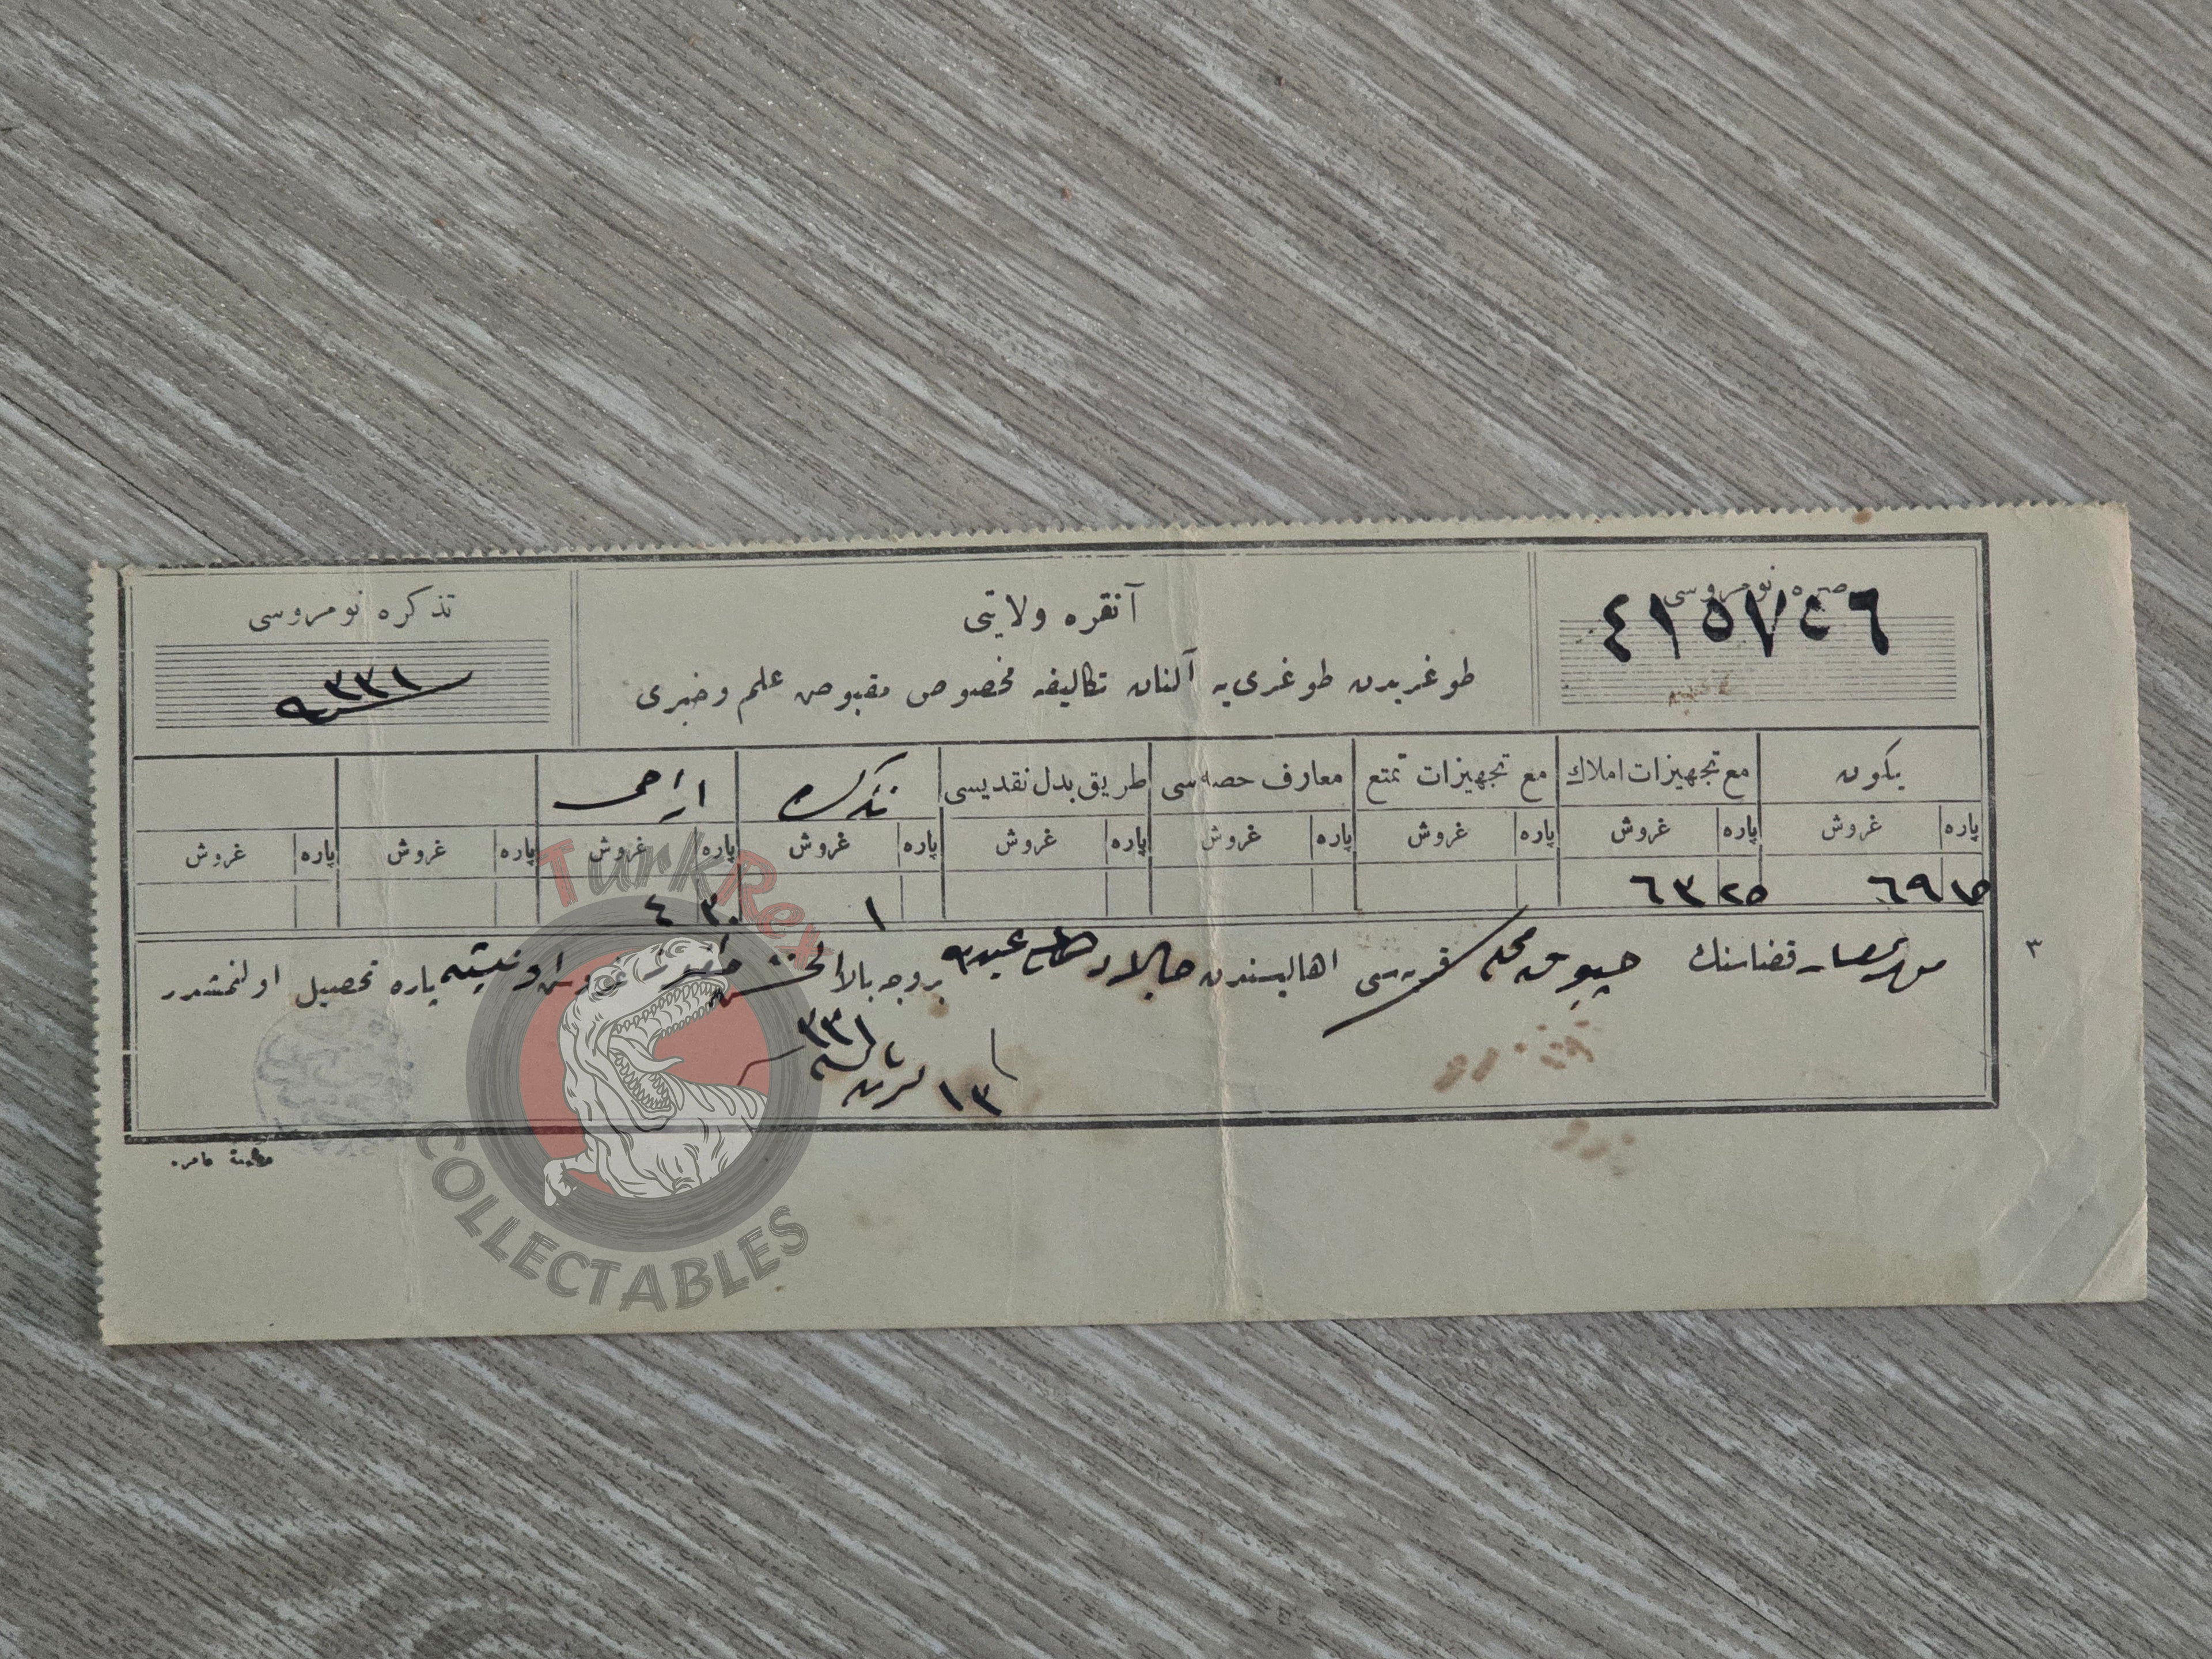 صره نومروسی
٤١٥٧٤٦
آنقره ولایتی
طوغریدن طوغری یه آلنان تکالیفه مخصوص مقبوض علم وخبری
تذکره نومروسی
٩٣٣١
یکون
مع تجهیزات املاك
مع تجهیزات تمتع
معارف حصه سی
طریق بدل نقدیسی
تذکره
اراضی
پاره غروش پاره غروش پاره غروش پاره غروش پاره غروش پاره غروش پاره غروش پاره غروش پاره غروش
١٥ ٦٩ ٢٥ ٦٣ ١ ٣٠ ٤
قضاسنك قریه سی اهالیسندن بروجه بالا غروش پاره تحصیل اولنمشدر
٣
١٣ سنه ٣٣١
مطبعه عامره
TurkRex
COLLECTABLES